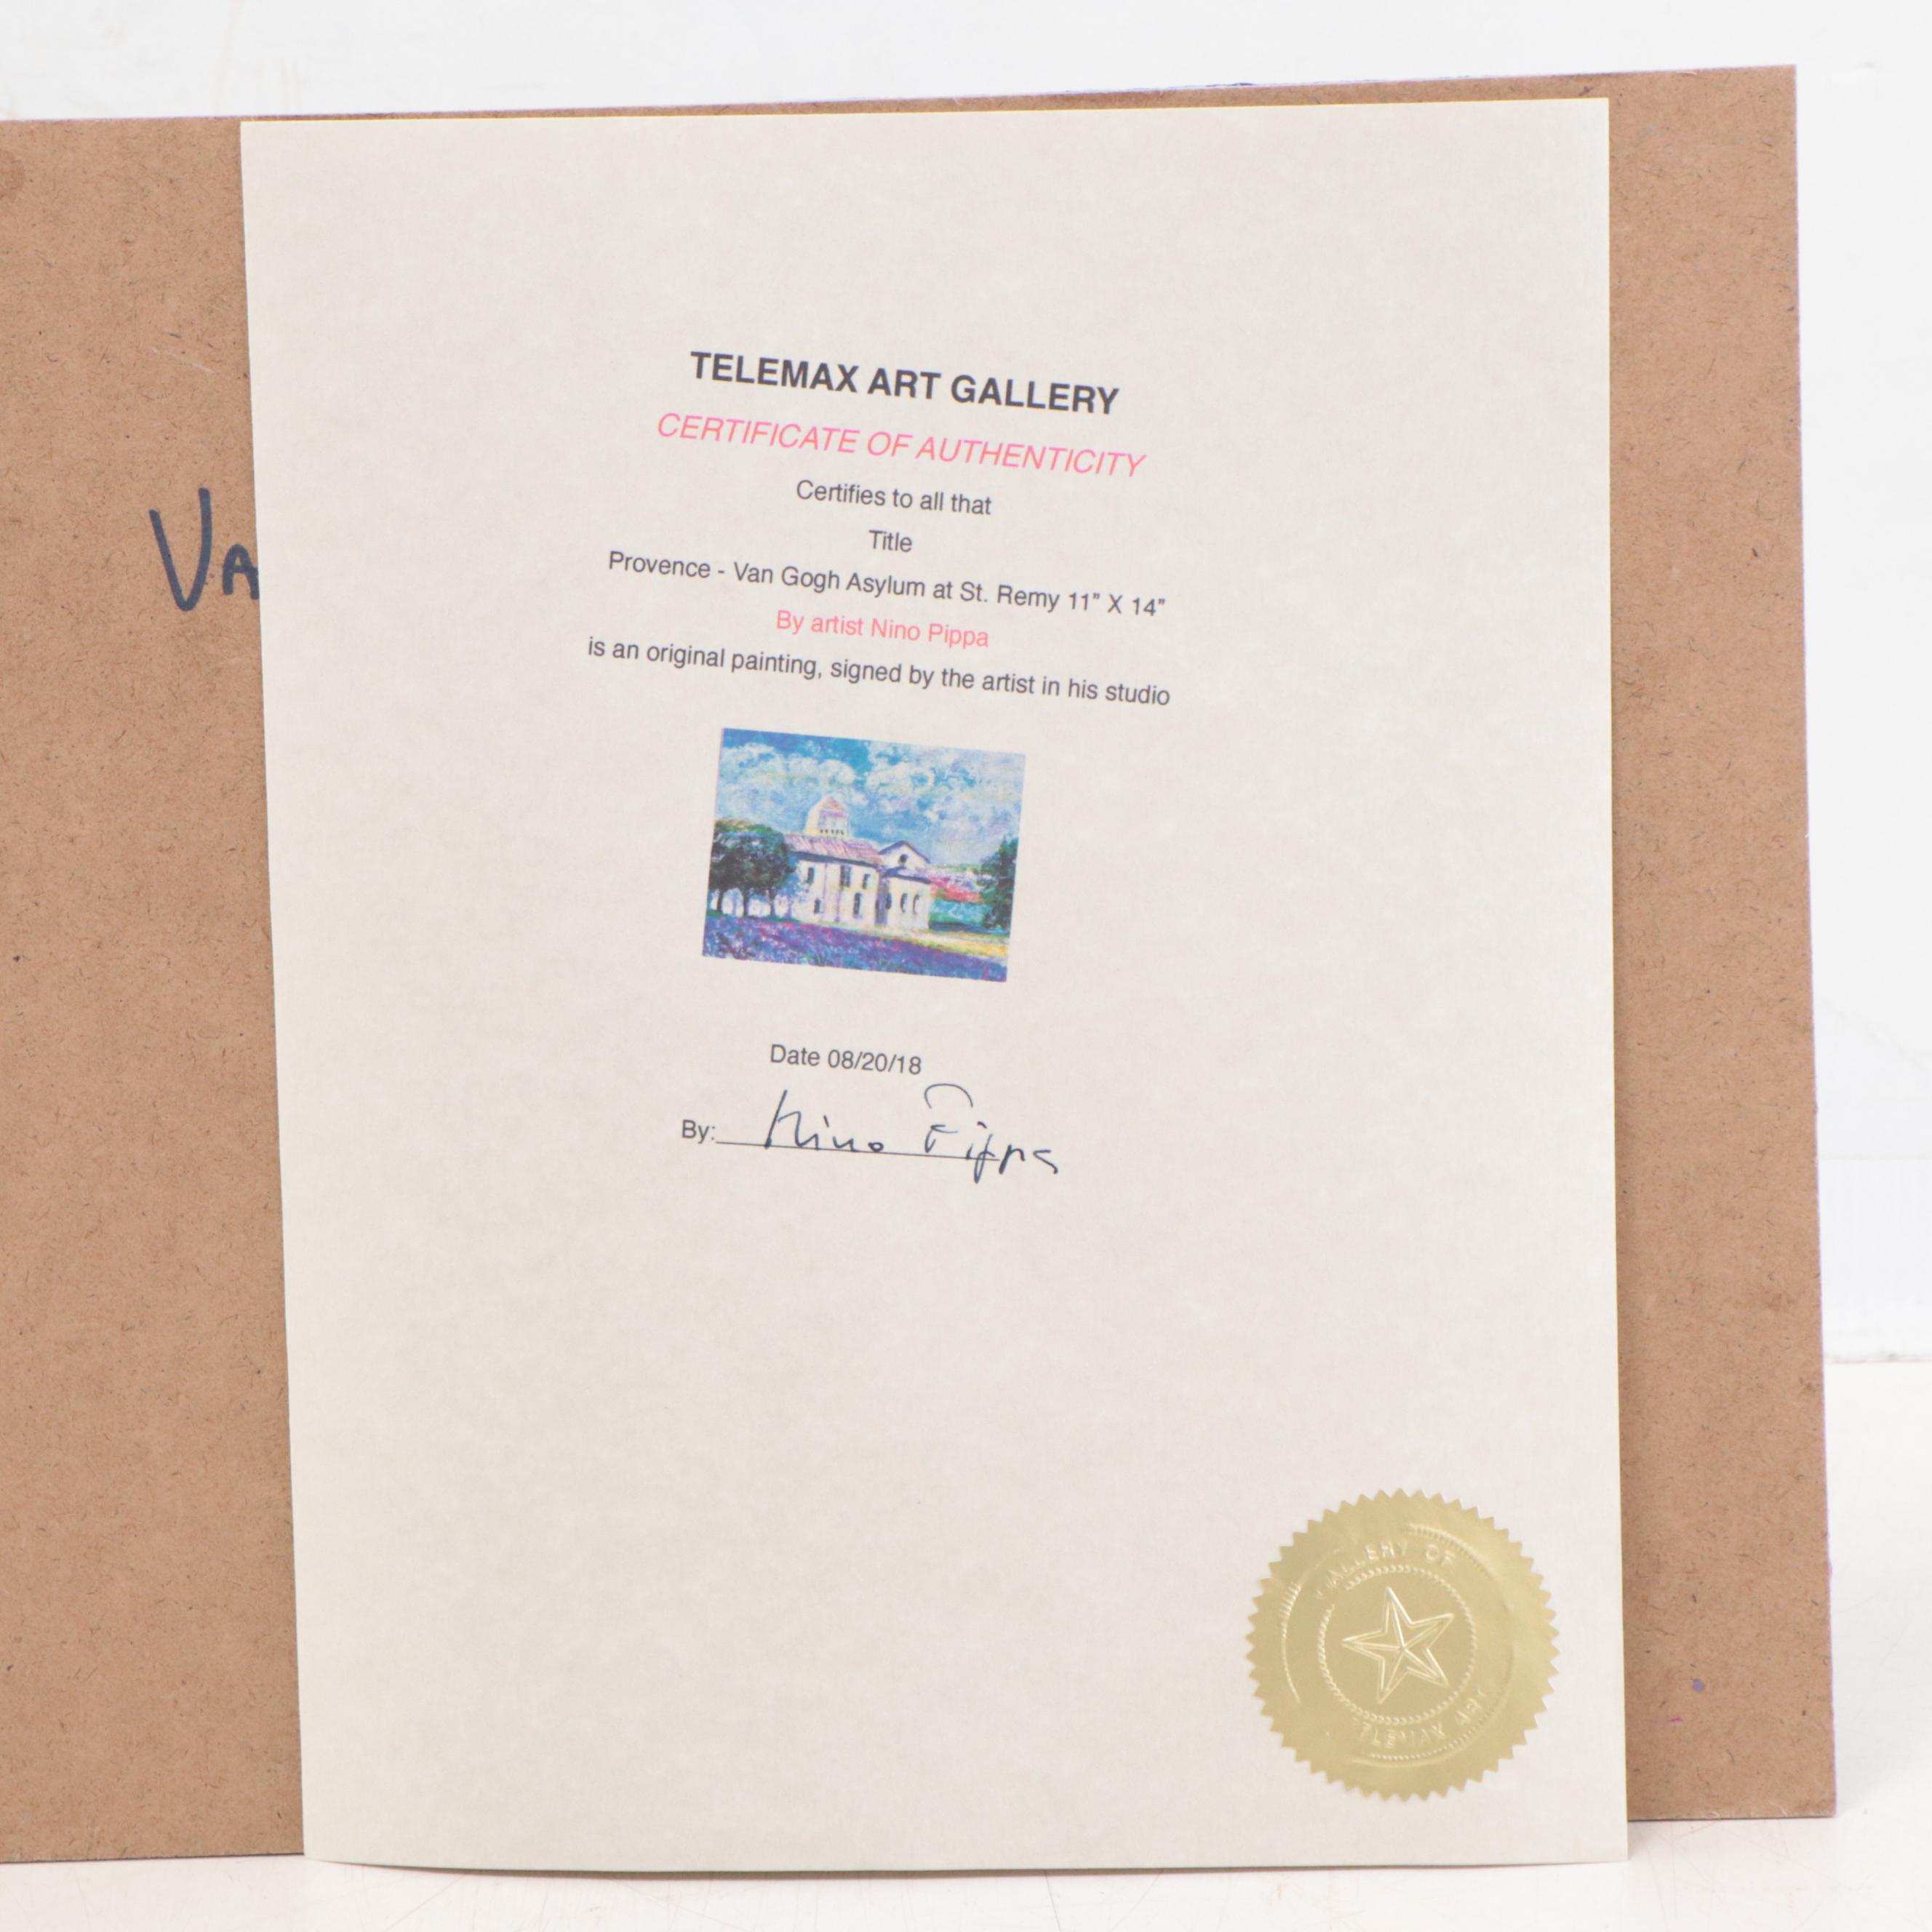 VA
TELEMAX ART GALLERY
CERTIFICATE OF AUTHENTICITY
Certifies to all that
Title
Provence - Van Gogh Asylum at St. Remy 11” X 14”
By artist Nino Pippa
is an original painting, signed by the artist in his studio
Date 08/20/18
By: Nino Pippa
GALLERY OF
TELEMAX ART